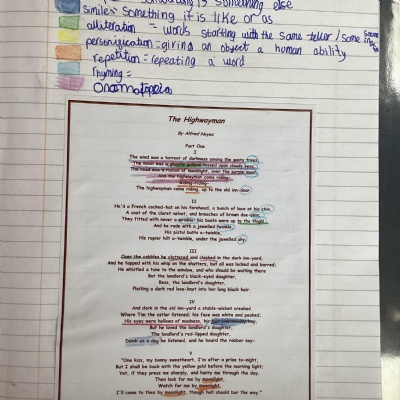 is something else
simile = Something it is like or as
alliteration = words starting with the same letter / same
personification = giving an object a human ability
repetition = repeating a word
Rhyming =
Onomatopoeia
The Highwayman
By Alfred Noyes
Part One
I
The wind was a torrent of darkness among the gusty trees,
The moon was a ghostly galleon tossed upon cloudy seas,
The road was a ribbon of moonlight, over the purple moor,
And the highwayman came riding-
Riding-riding-
The highwayman came riding, up to the old inn-door.
II
He'd a French cocked-hat on his forehead, a bunch of lace at his chin,
A coat of the claret velvet, and breeches of brown doe-skin;
They fitted with never a wrinkle: his boots were up to the thigh!
And he rode with a jewelled twinkle,
His pistol butts a-twinkle,
His rapier hilt a-twinkle, under the jewelled sky.
III
Over the cobbles he clattered and clashed in the dark inn-yard,
And he tapped with his whip on the shutters, but all was locked and barred;
He whistled a tune to the window, and who should be waiting there
But the landlord's black-eyed daughter,
Bess, the landlord's daughter,
Plaiting a dark red love-knot into her long black hair.
IV
And dark in the old inn-yard a stable-wicket creaked
Where Tim the ostler listened; his face was white and peaked;
His eyes were hollows of madness, his hair like mouldy hay,
But he loved the landlord's daughter,
The landlord's red-lipped daughter,
Dumb as a dog he listened, and he heard the robber say-
V
"One kiss, my bonny sweetheart, I'm after a prize to-night,
But I shall be back with the yellow gold before the morning light;
Yet, if they press me sharply, and harry me through the day,
Then look for me by moonlight,
Watch for me by moonlight,
I'll come to thee by moonlight, though hell should bar the way."